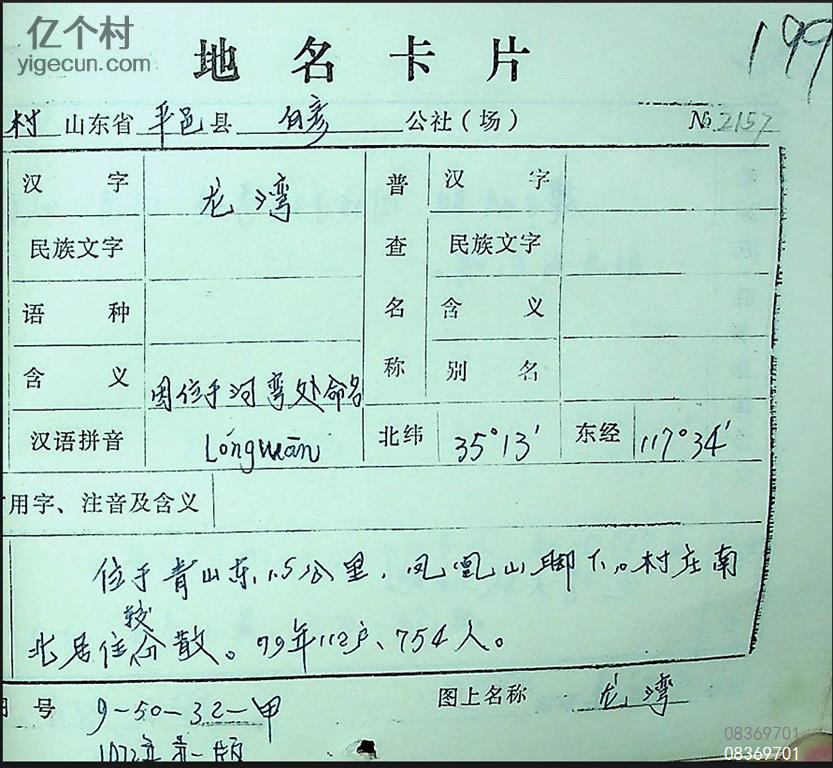 亿个村
yigecun.com
199
地名卡片
村 山东省 平邑县 白彦 公社(场) № 2157
汉字 龙湾 普查名称 汉字
民族文字 民族文字
语种 含义
含义 因位于河弯处命名 别名
汉语拼音 Lóngwān 北纬 35°13′ 东经 117°34′
用字、注音及含义
位于青山东1.5公里,凤凰山脚下。村庄南
北居住较分散。79年112户、754人。
图号 9-50-32-甲 图上名称 龙湾
1972年第一版
08369701
08369701